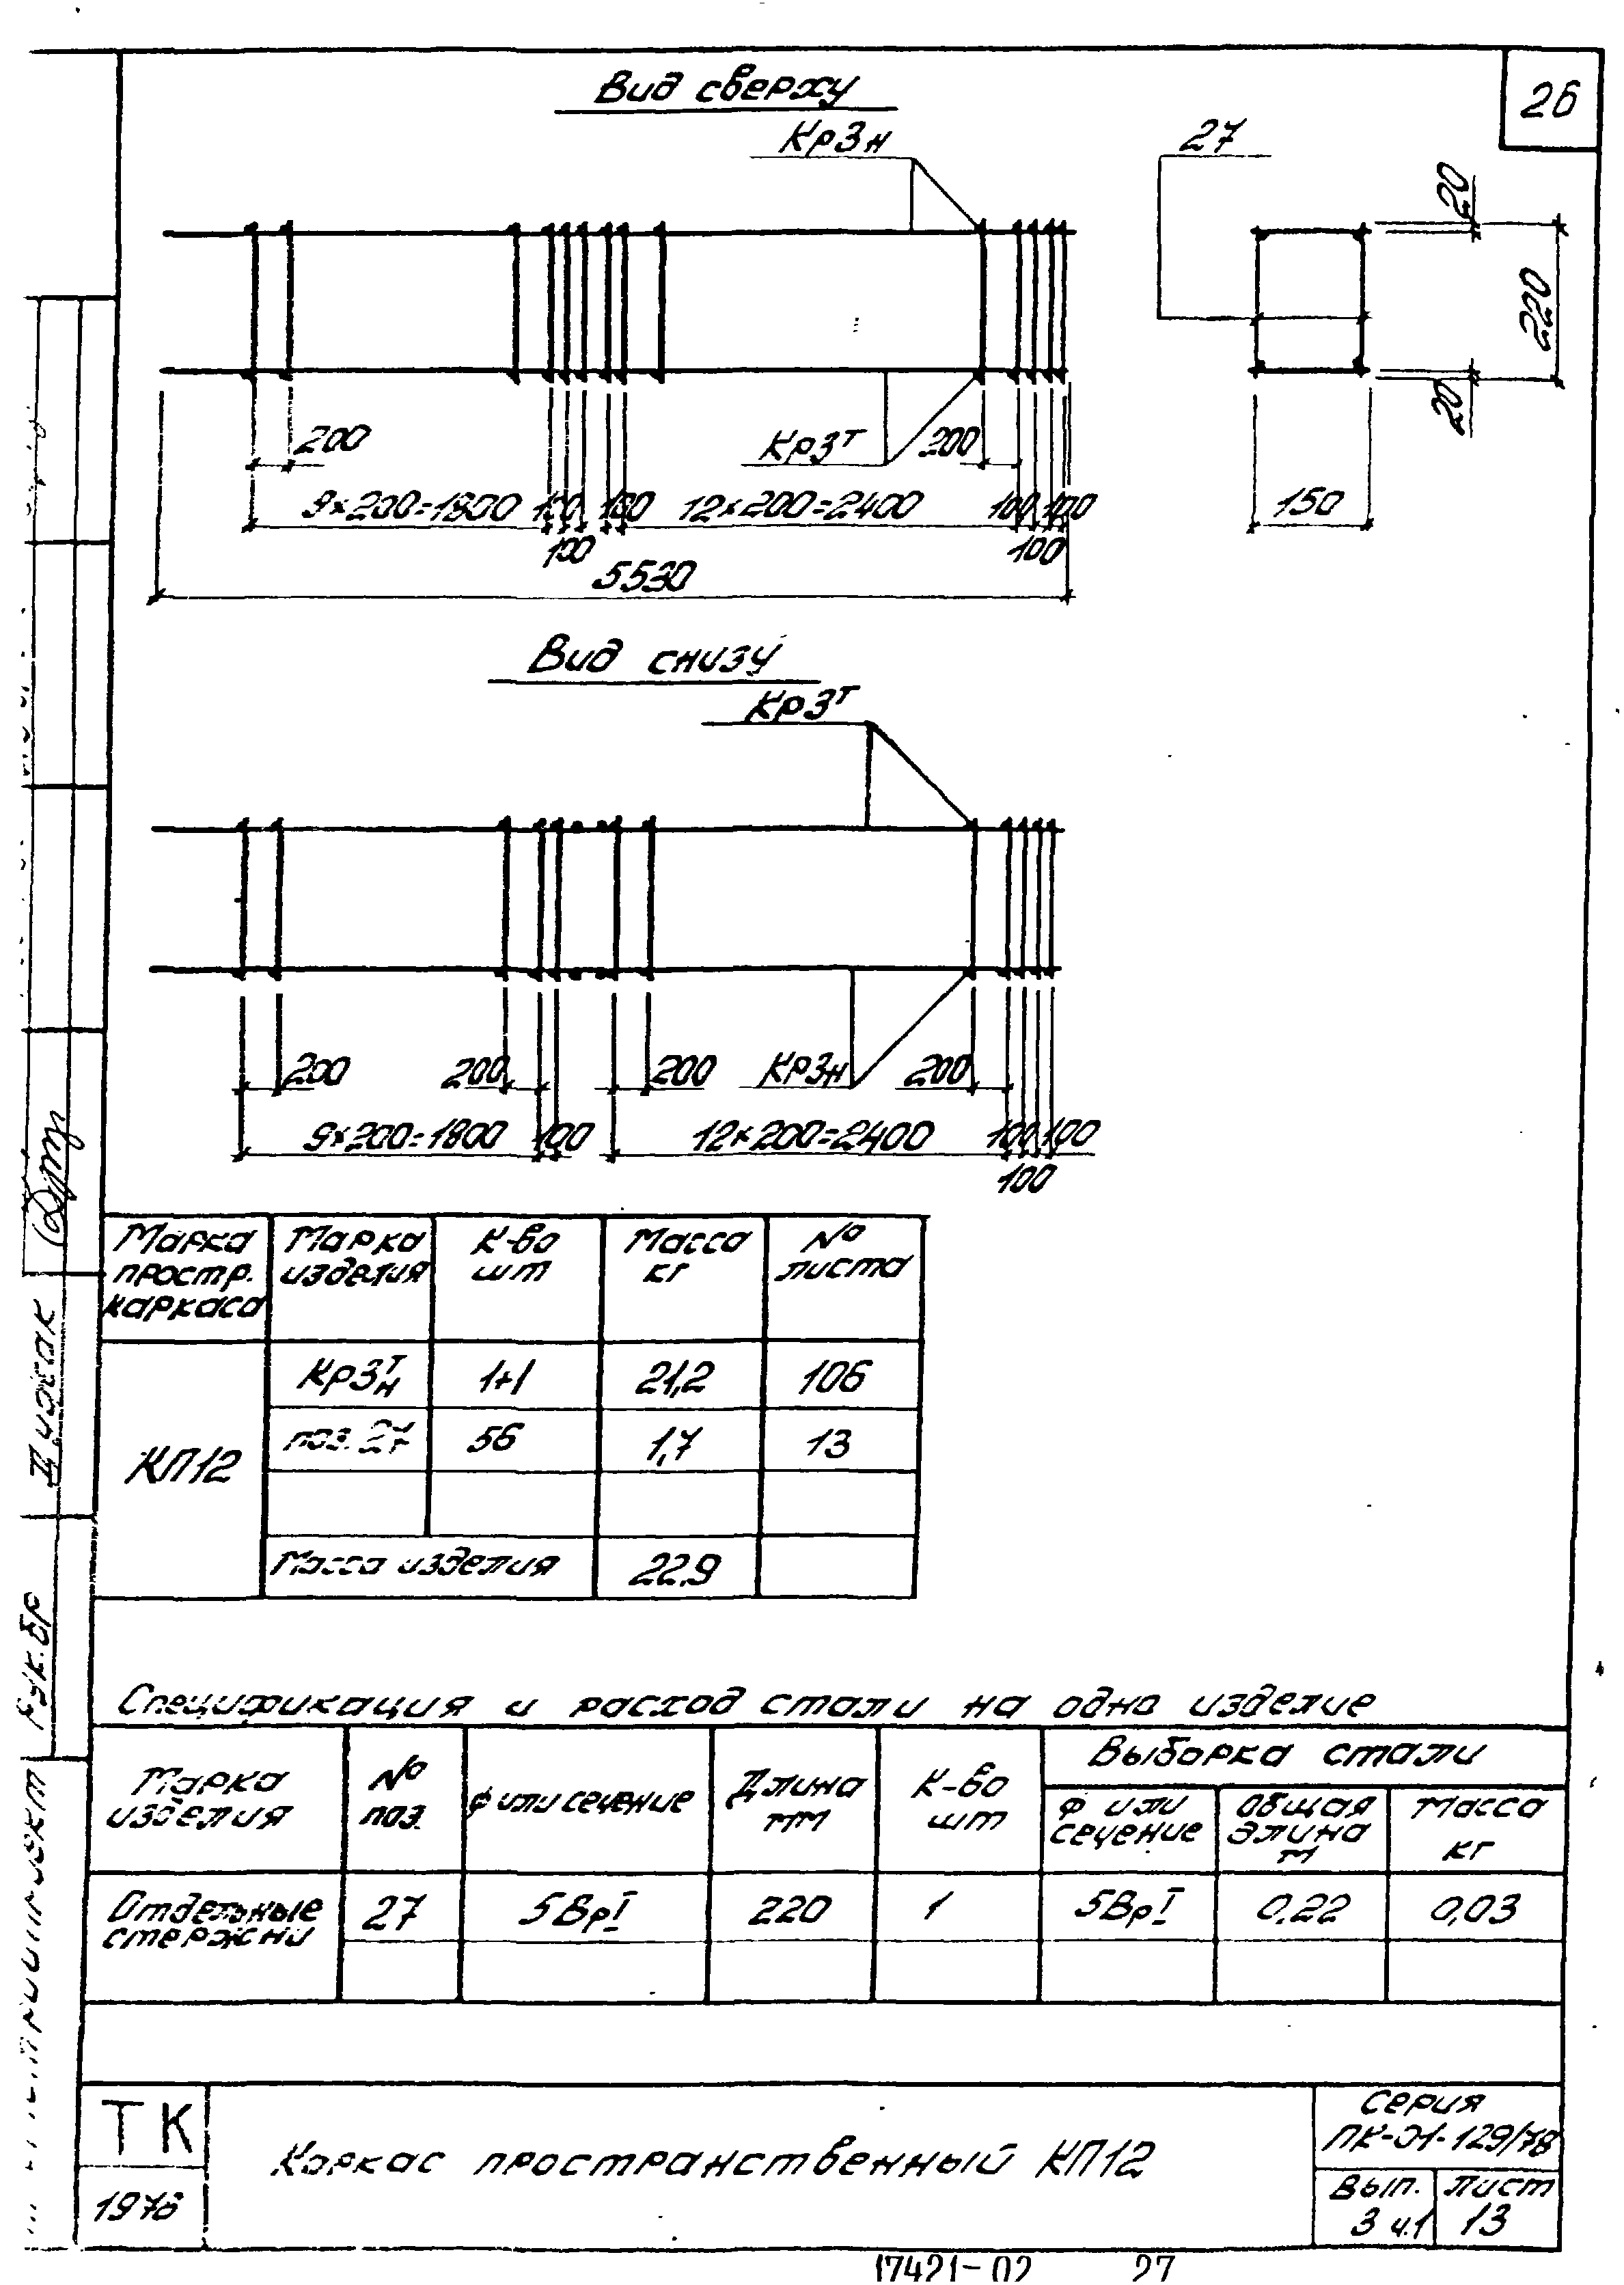 26
Вид сверху
Кр3н
27
20
220
20
150
200
Кр3т
200
9×200=1800 100 100 12×200=2400 100 100
100 100
5530
Вид снизу
Кр3т
200 200 200 Кр3н 200
9×200=1800 100 12×200=2400 100 100
100
Марка простр. каркаса
Марка изделия
К-во шт
Масса кг
№ листа
КП12
Кр3т н 1+1 21,2 106
поз. 27 56 1,7 13
Масса изделия 22,9
Спецификация и расход стали на одно изделие
Марка изделия
№ поз.
Ф или сечение
Длина мм
К-во шт
Выборка стали
Ф или сечение
Общая длина м
Масса кг
Отдельные стержни
27 5ВрI 220 1 5ВрI 0,22 0,03
ТК
1978
Каркас пространственный КП12
Серия
ПК-01-129/78
Вып. 3 ч.1
Лист 13
17421-02 27
Рук. бр